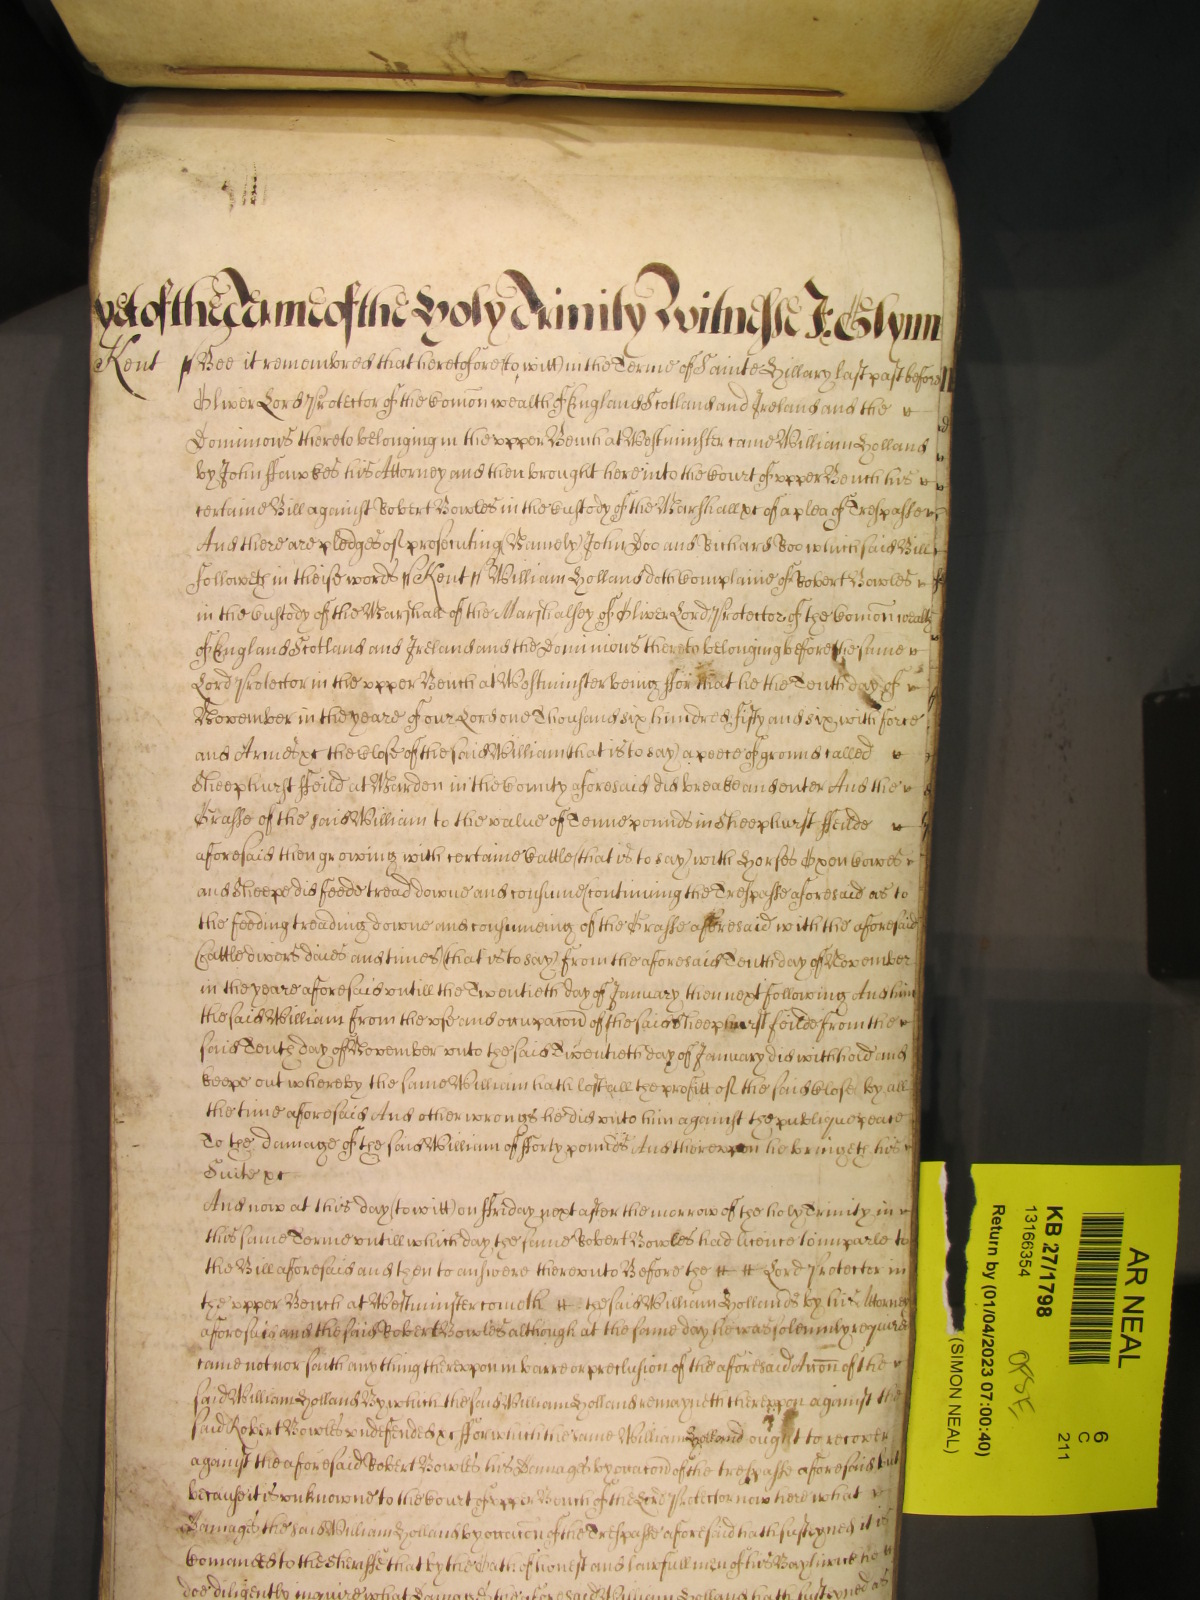 yet of the Terme of the Holy Trinity Witnesse J: Glynn
Kent ss Bee it remembred that heretofore (to witt) in the Terme of Sainte Hillary last past before
Oliver Lord Protector of the Comon wealth of England Scotland and Ireland and the
Dominions thereto belonging in the upper Bench at Westminster came William Holland
by John Fawkes his Attorney and then brought here into the Court of upper Bench his
certaine Bill against Robert Bowles in the Custody of the Marshall &c of a plea of Trespasse
And there are pledges of prosecuting (Namely) John Doo and Richard Roo which said Bill
followeth in theise words ss Kent ss William Holland doth Complaine of Robert Bowles
in the Custody of the Marshall of the Marshalsey of Oliver Lord Protector of the Comon wealth
of England Scotland and Ireland and the Dominions thereto belonging before the same
Lord Protector in the upper Bench at Westminster being ffor that he the Tenth day of
November in the yeare of our Lord one Thousand six hundred fifty and six with force
and Armes &c the Close of the said William (that is to say) a peece of ground called
Sheephurst ffeild at Marden in the County aforesaid did breake and enter And the
Grasse of the said William to the value of Tenne pounds in Sheephurst ffeilde
aforesaid then growing with certaine Cattle (that is to say) with Horses Oxen Cowes
and Sheepe did feede tread downe and consume (continuing the Trespasse aforesaid as to
the feeding treading downe and consumeing of the Grasse aforesaid with the aforesaid
Cattle divers daies and times (that is to say) from the aforesaid Tenth day of November
in the yeare aforesaid untill the Twentieth day of January then next following And him
the said William from the use and occupacon of the said Sheephurst feilde from the
said Tenth day of November unto the said Twentieth day of January did withhold and
keepe out whereby the same William hath lost all the profitt of the said Close by all
the time aforesaid And other wrongs he did unto him against the publique peace
To the damage of the said William of fforty pounds And thereupon he bringeth his
Suite &c
And now at this day (to witt) on ffriday next after the morrow of the holy Trinity in
this same Terme untill which day the same Robert Bowles had licence to imparle to
the Bill aforesaid and then to answere thereunto Before the Lord Protector in
the upper Bench at Westminster cometh the said William Holland by his Attorney
aforesaid and the said Robert Bowles although at the same day he was solemnly required
came not nor saith any thing thereupon in barre or preclusion of the aforesaid Accon of the
said William Holland By which the said William Holland remayneth thereupon against the
said Robert Bowles undefended &c ffor which the same William Holland ought to recover
against the aforesaid Robert Bowles his Damages by occacon of the trespasse aforesaid but
because it is unknowne to the Court of upper Bench of the Lord Protector now here what
Damages the said William Holland by occacon of the Trespasse aforesaid hath susteyned it is
Comanded to the Sheriffe that by the Oath of honest and lawfull men of his Baylywick he
doe diligently inquire what Damages the aforesaid William Holland hath susteyned as
AR NEAL
6
C
211
KB 27/1798
13166354
Return by (01/04/2023 07:00:40)
(SIMON NEAL)